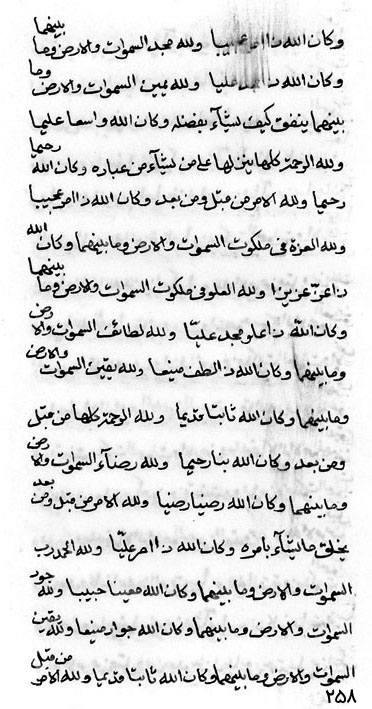 وكان الله ذا امر عجيبا ولله مجد السموات والارض وما بينهما
وكان الله ذا مجد عليا ولله يمين السموات والارض وما
بينهما ينفق كيف يشآء بفضله وكان الله واسعا عليما
ولله الرحمة كلها ينزلها على من يشآء من عباده وكان الله رحيما
رحيما ولله الامر من قبل ومن بعد وكان الله ذا امر عجيبا
ولله العزة فى ملكوت السموات والارض وما بينهما وكان الله
ذا عز عزيزا ولله العلو فى ملكوت السموات والارض وما بينهما
وكان الله ذا علو مجد عليّا ولله لطائف السموات والارض
وما بينهما وكان الله ذا لطف منيعا ولله يقين السموات والارض
وما بينهما وكان الله ثابتا قديما ولله الرحمة كلها من قبل
ومن بعد وكان الله بنا رحيما ولله رضآء السموات والارض
وما بينهما وكان الله رضيا رضيا ولله الامر من قبل ومن بعد
يخلق ما يشآء بامره وكان الله ذا امر عليّا ولله الحمد رب
السموات والارض وما بينهما وكان الله معينا حبيبا ولله جود
السموات والارض وما بينهما وكان الله جوادا منيعا ولله يقين
السموات والارض وما بينهما وكان الله ثابتا قديما ولله الامر من قبل
٢٥٨